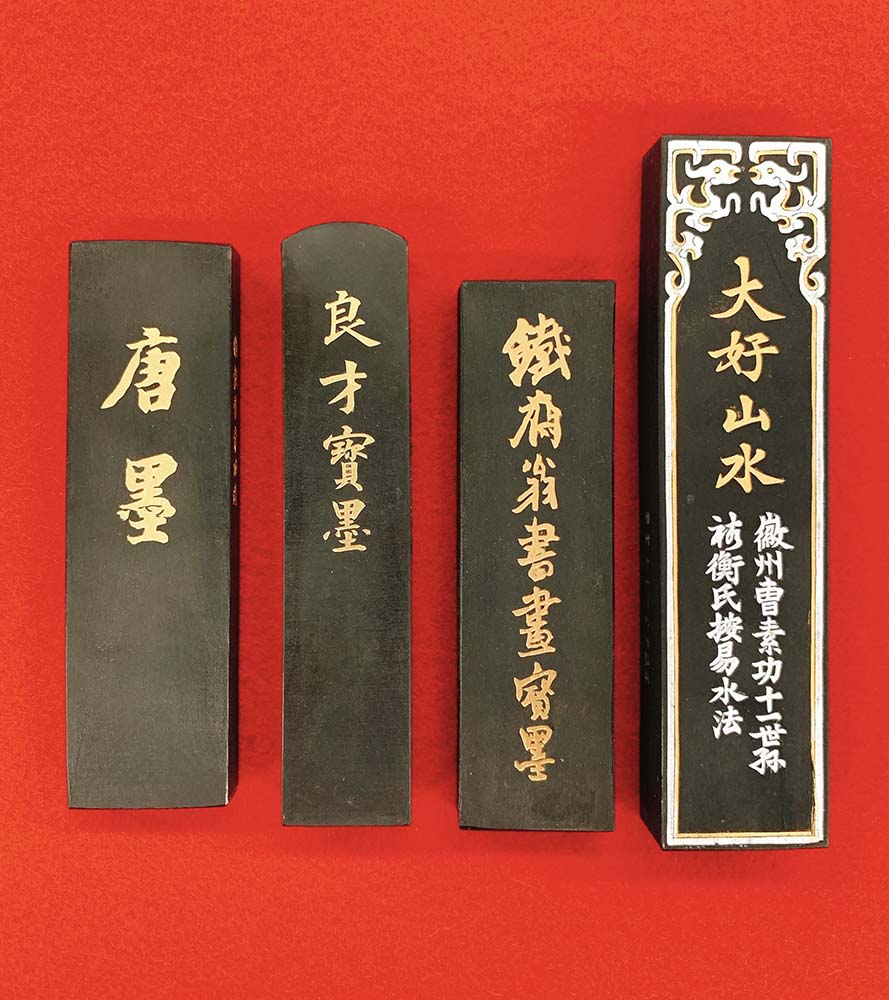 唐墨
良才寶墨
鐵肩翁書畫寶墨
大好山水
徽州曹素功十一世孫
裱衡氏按易水法